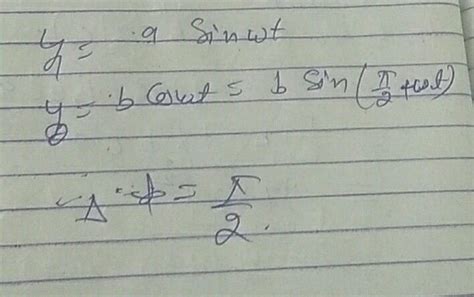 y₁ = a Sin ωt
y₂ = b Cos ωt = b Sin (π/2 + ωt)
Δ ϕ = π/2.